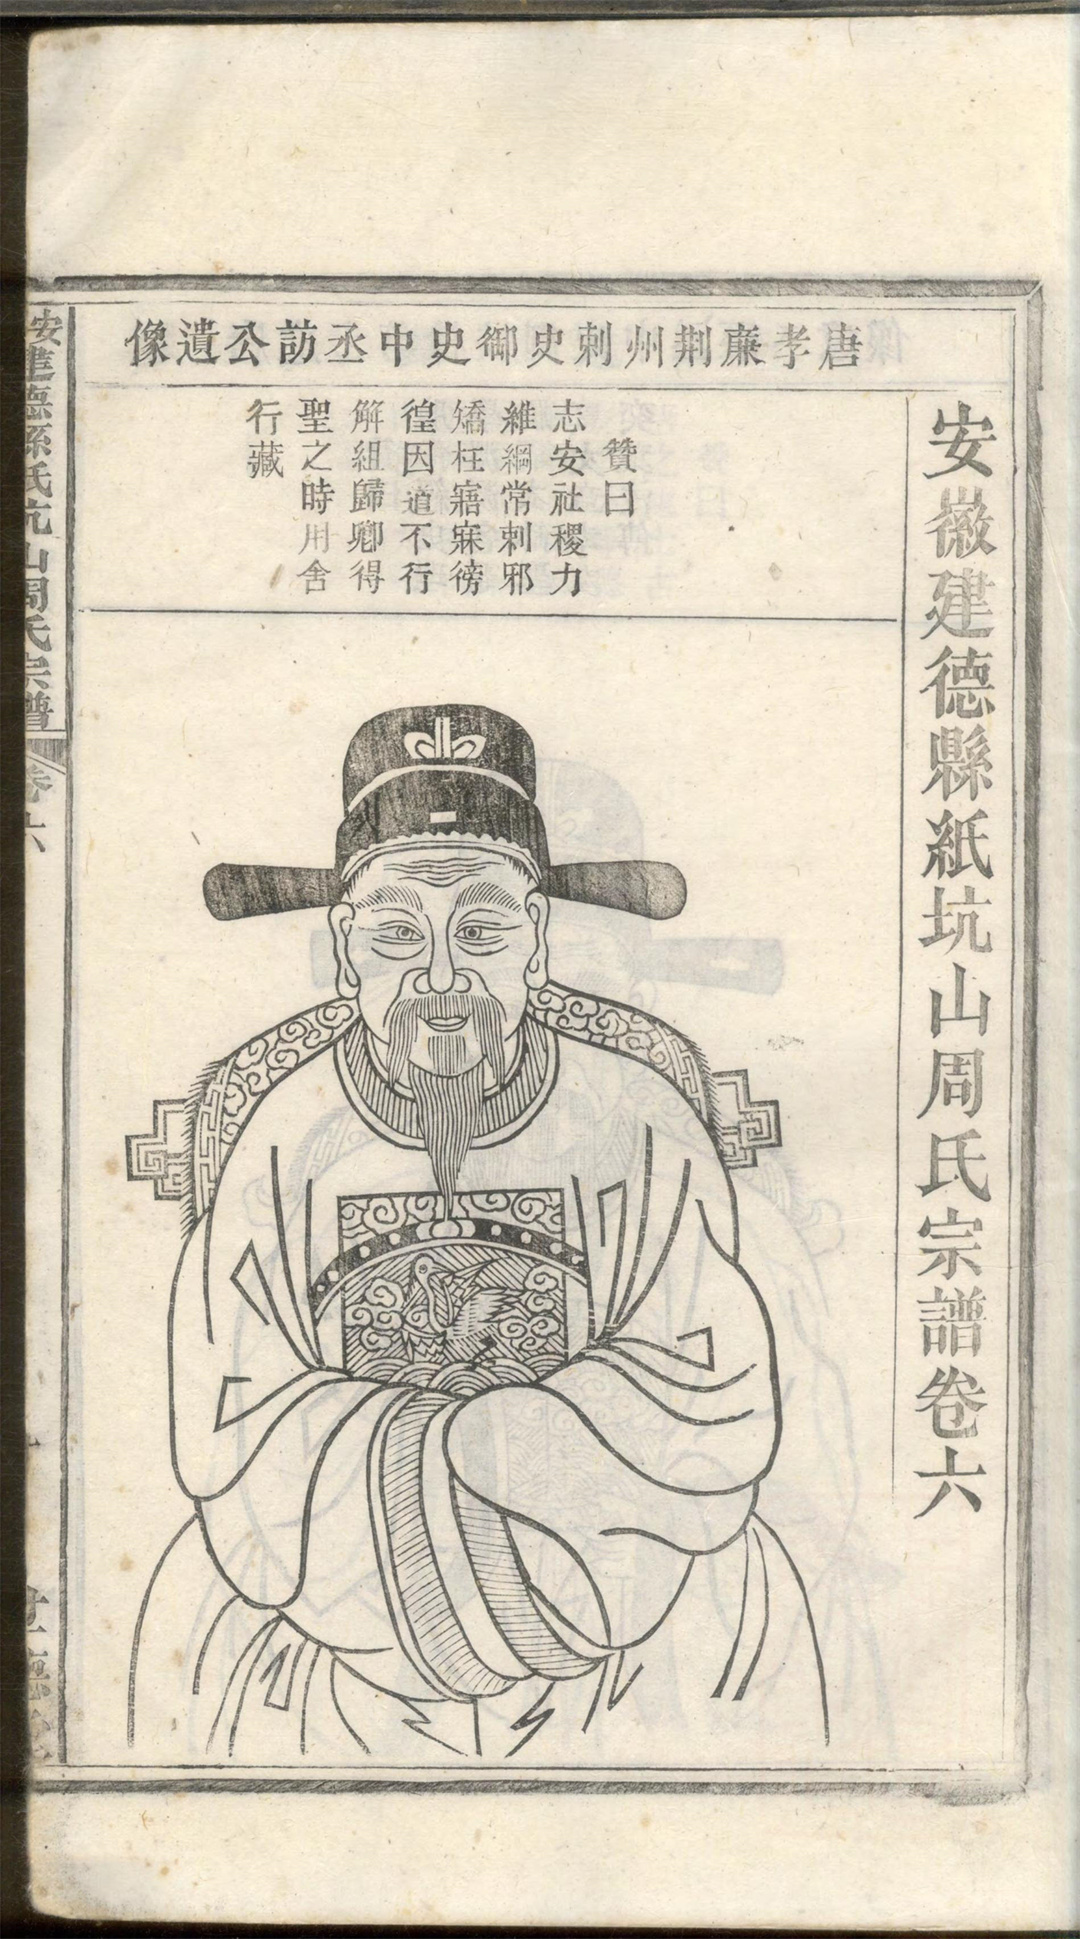 安徽建德縣紙坑山周氏宗譜卷六
唐孝廉荆州刺史御史中丞訪公遺像
贊曰
志安社稷力
維綱常刺邪
矯枉寤寐徬
徨因道不行
解組歸鄉得
聖之時用舍
行藏
安建德縣紙坑山周氏宗譜
卷六